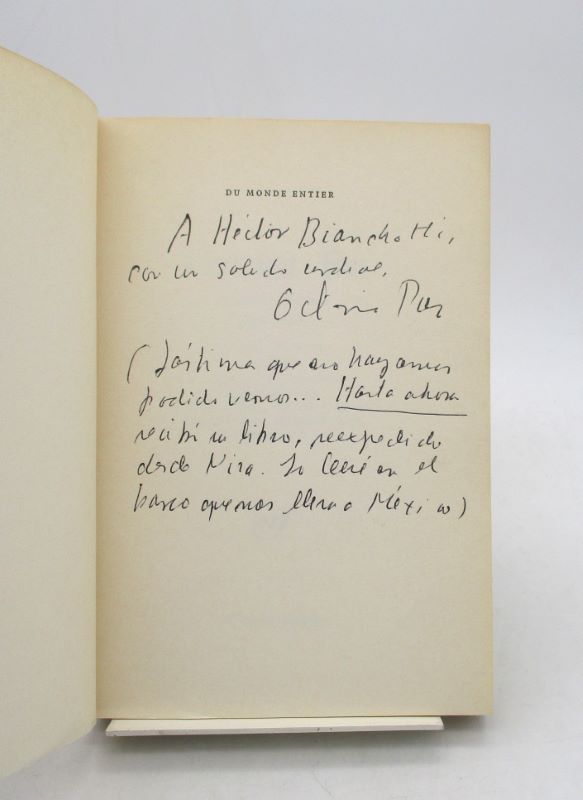 DU MONDE ENTIER
A Héctor Bianchotti,
con un saludo cordial,
Octavio Paz
(Lástima que no hayamos
podido vernos... Hasta ahora
recibí su libro, reexpedido
desde Niza. Lo leeré en el
barco que nos lleva a México)